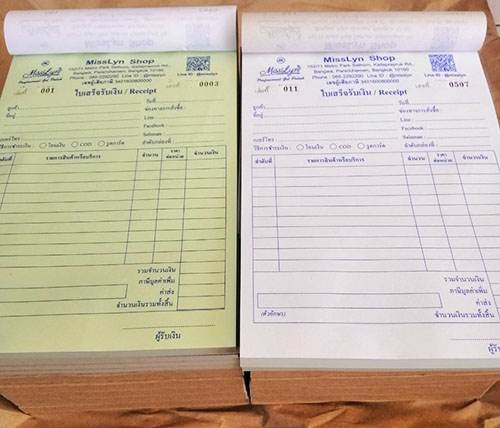 MissLyn Shop
MissLyn
Line ID : @misslyn
เล่มที่ 001
เลขที่ 0003
ใบเสร็จรับเงิน / Receipt
ลูกค้า
วันที่
ที่อยู่
ช่องทางการสั่งซื้อ :
Line :
Facebook :
เบอร์โทร
Salesman :
วิธีการชำระเงิน : โอนเงิน COD รูดการ์ด
ลำดับกล่องที่ :
ลำดับที่ รายการสินค้าหรือบริการ จำนวน ราคา ต่อหน่วย จำนวนเงิน
รวมจำนวนเงิน
ภาษีมูลค่าเพิ่ม
ค่าส่ง
จำนวนเงินรวมทั้งสิ้น
ผู้รับเงิน
MissLyn Shop
Bangwa, Pasicharoen, Bangkok 10160
MissLyn
Line ID : @misslyn
เล่มที่ 011
เลขที่ 0507
ใบเสร็จรับเงิน / Receipt
ลูกค้า
วันที่
ที่อยู่
ช่องทางการสั่งซื้อ :
Line :
Facebook :
เบอร์โทร
Salesman :
วิธีการชำระเงิน : โอนเงิน COD รูดการ์ด
ลำดับกล่องที่ :
ลำดับที่ รายการสินค้าหรือบริการ จำนวน ราคา ต่อหน่วย จำนวนเงิน
รวมจำนวนเงิน
ภาษีมูลค่าเพิ่ม
ค่าส่ง
(ตัวอักษร)
จำนวนเงินรวมทั้งสิ้น
ผู้รับเงิน